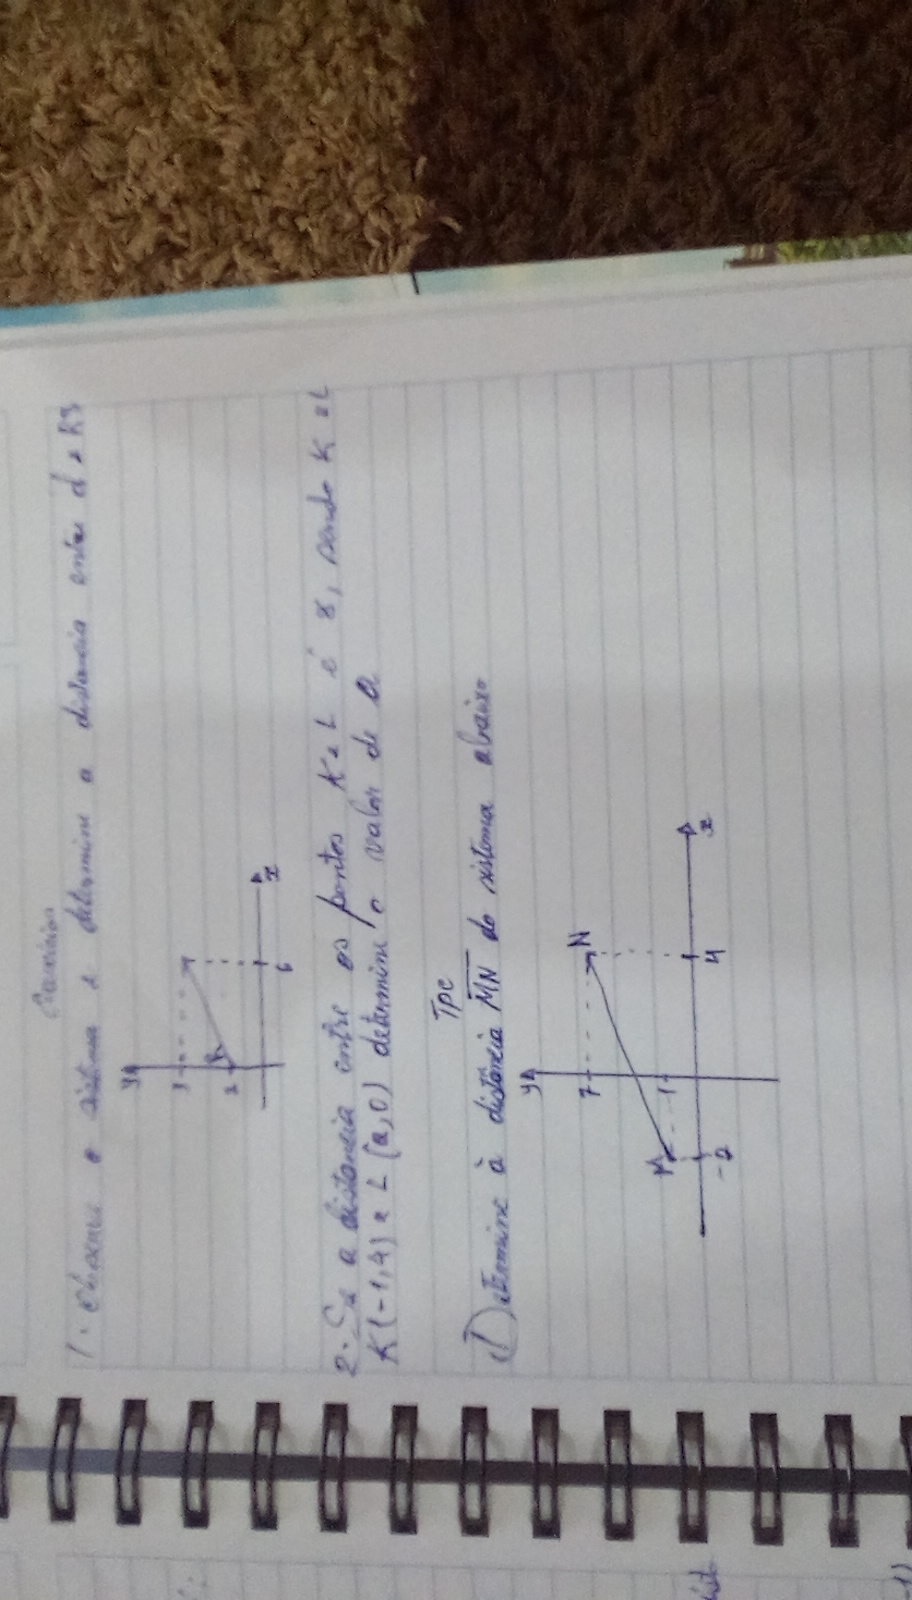 Exercício
1. Observe o sistema e determine a distancia entre d = RS
y
R
2
6
x
2. Se a distancia entre os pontos K e L é 8, sendo K e L
K(-1,4) e L (a,0) determine o valor de a
Tpc
1) Determine à distância MN do sistema abaixo
y
7
N
M
1
-2
4
x